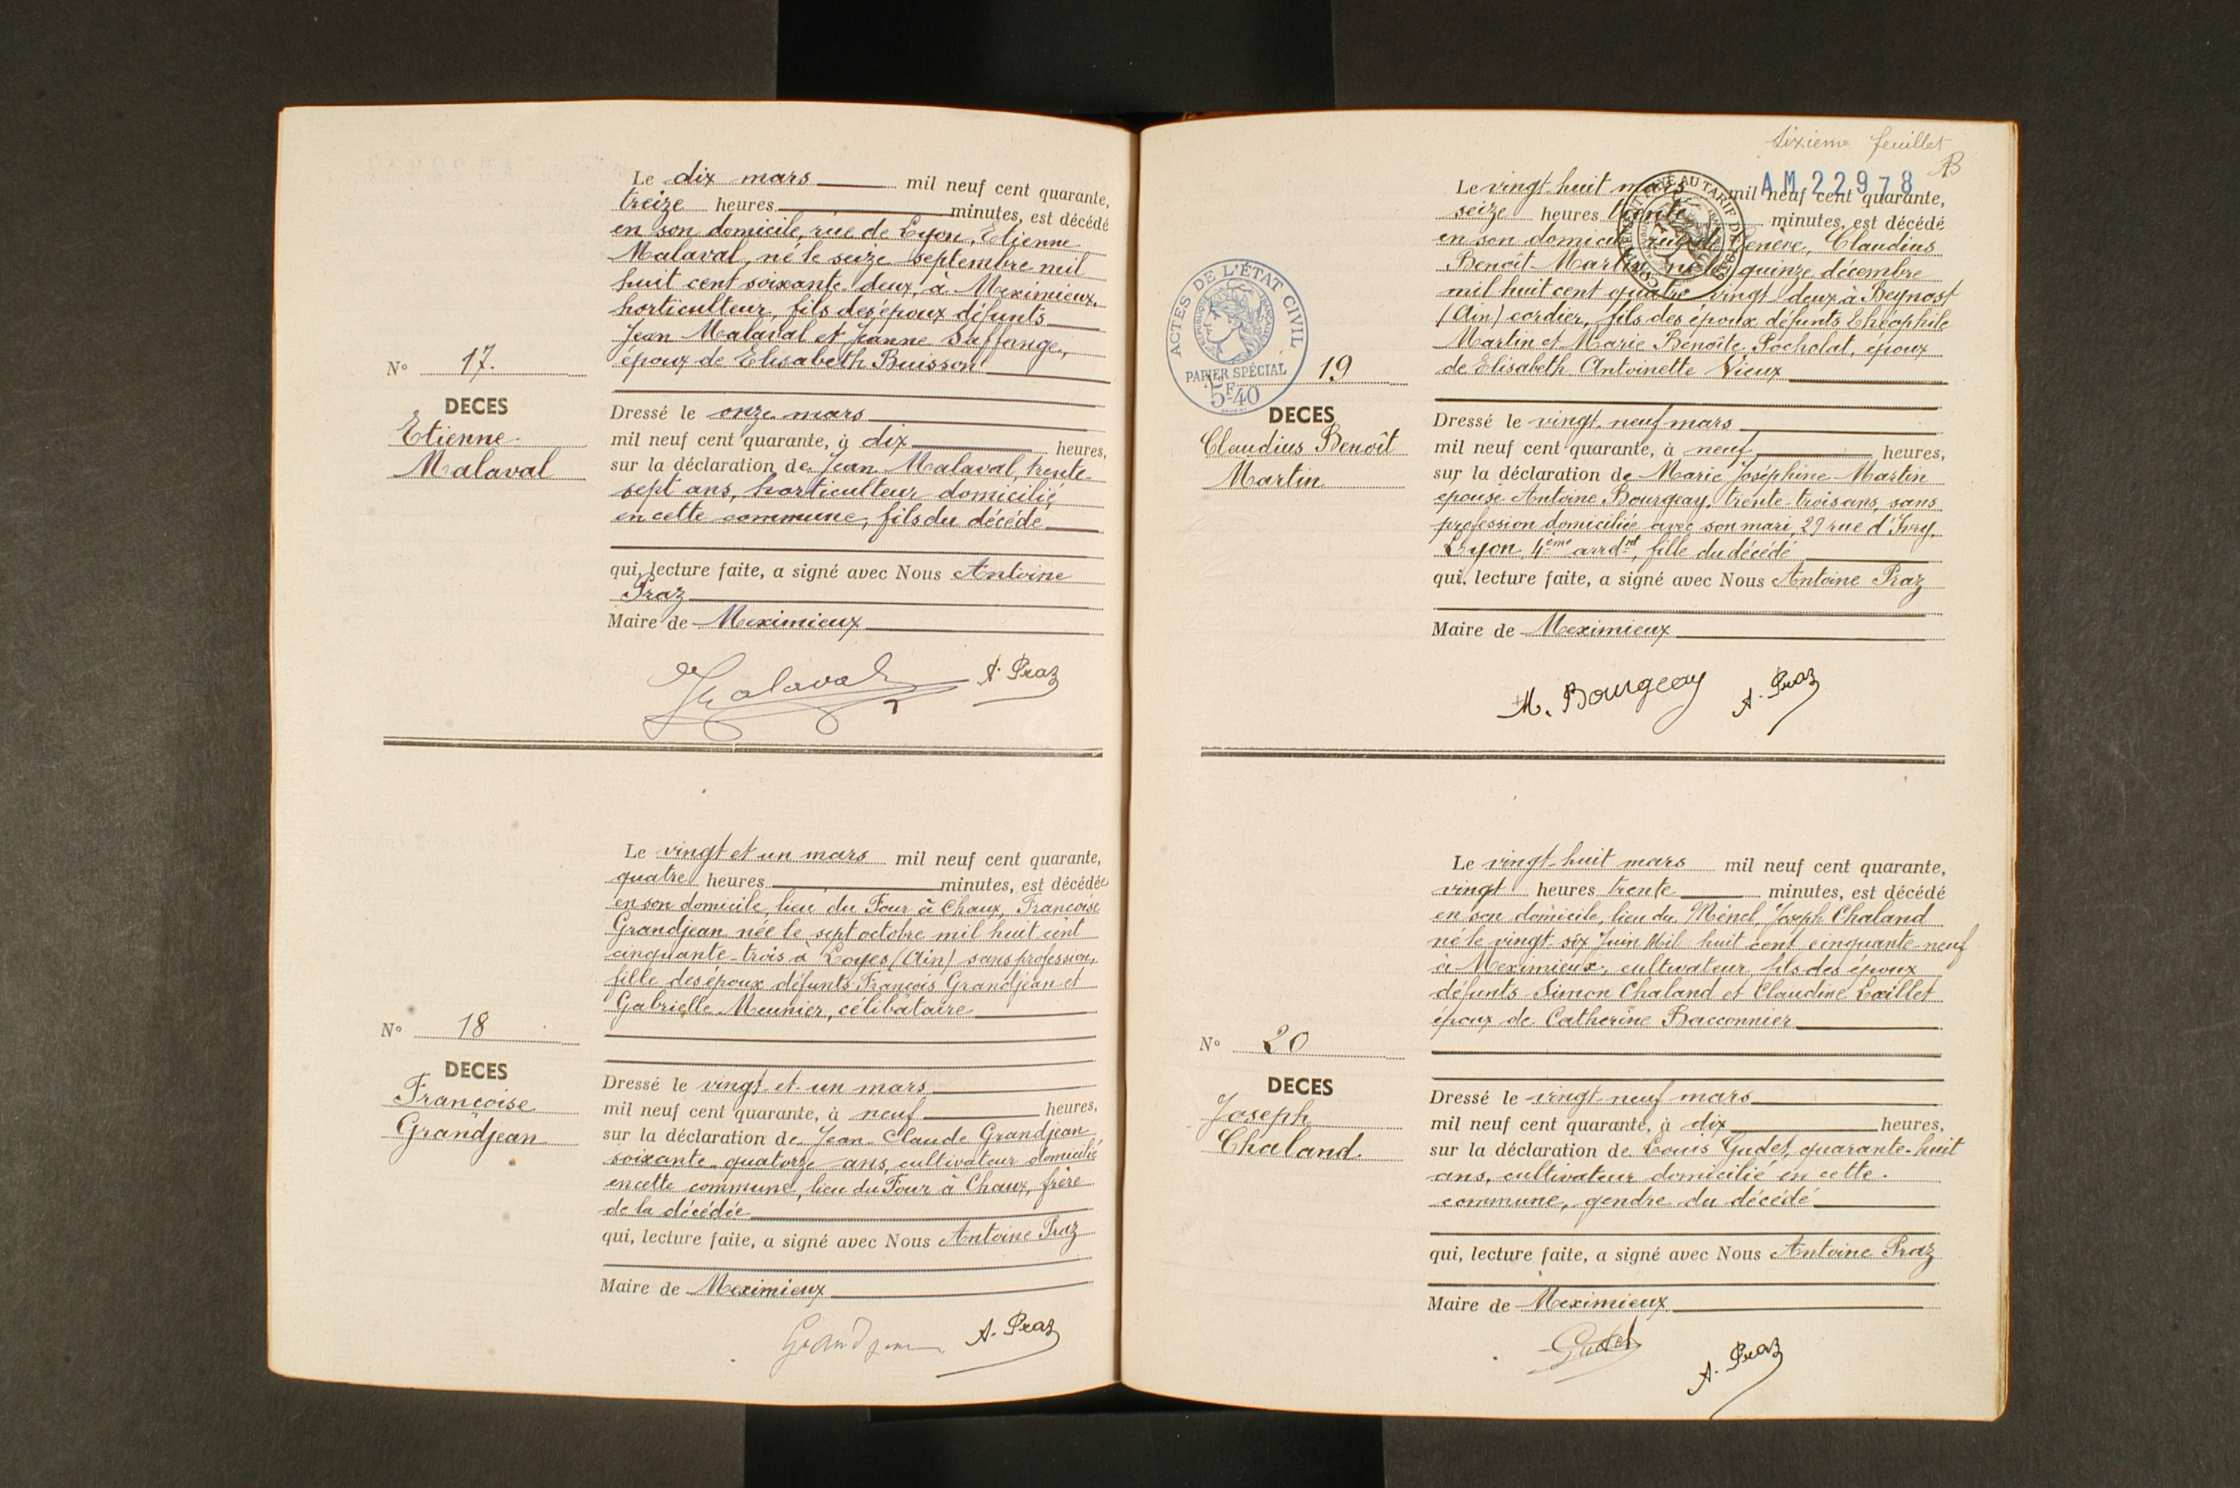 Le dix mars mil neuf cent quarante,
treize heures minutes, est décédé
en son domicile, rue de Lyon, Etienne
Malaval, né le seize septembre mil
huit cent soixante-deux, à Meximieux,
horticulteur, fils des époux défunts
Jean Malaval et Jeanne
époux de Elisabeth Buisson
N° 17.
DECES
Etienne
Malaval
Dressé le onze mars
mil neuf cent quarante, à dix heures,
sur la déclaration de Jean Malaval, trente-
sept ans, horticulteur domicilié,
en cette commune, fils du décédé
qui, lecture faite, a signé avec Nous Antoine
Praz
Maire de Meximieux
Malaval A. Praz
Le vingt et un mars mil neuf cent quarante,
quatre heures minutes, est décédée
en son domicile, lieu du Four à Chaux, Françoise
Grandjean née le sept octobre mil huit cent
cinquante-trois à Loyes (Ain) sans profession,
fille des époux défunts François Grandjean et
Gabrielle Meunier, célibataire
N° 18
DECES
Françoise
Grandjean
Dressé le vingt et un mars
mil neuf cent quarante, à neuf heures,
sur la déclaration de Jean-Claude Grandjean
soixante-quatorze ans, cultivateur domicilié
en cette commune, lieu du Four à Chaux, frère
de la décédée
qui, lecture faite, a signé avec Nous Antoine Praz
Maire de Meximieux
Grandjean A. Praz
sixième feuillet
AM 22978
Le vingt-huit mars mil neuf cent quarante,
seize heures trente minutes, est décédé
en son domicile rue de Genève, Claudius
Benoît Martin né le quinze décembre
mil huit cent quatre-vingt-deux à Beynost
(Ain) cordier, fils des époux défunts Théophile
Martin et Marie Benoîte Pocholat, époux
de Elisabeth Antoinette Vieux
ACTES DE L'ÉTAT CIVIL
PAPIER SPÉCIAL
5F40
19
DECES
Claudius Benoît
Martin
Dressé le vingt-neuf mars
mil neuf cent quarante, à neuf heures,
sur la déclaration de Marie Joséphine Martin
épouse Antoine Bourgeay, trente-trois ans, sans
profession domiciliée avec son mari, 29 rue d'Ivry,
Lyon, 4ème arrdt, fille du décédé
qui, lecture faite, a signé avec Nous Antoine Praz
Maire de Meximieux
M. Bourgeay A. Praz
Le vingt-huit mars mil neuf cent quarante,
vingt heures trente minutes, est décédé
en son domicile, lieu du Ménel, Joseph Chaland
né le vingt-six Juin Mil huit cent cinquante-neuf
à Meximieux, cultivateur, fils des époux
défunts Simon Chaland et Claudine Laillet
époux de Catherine Bacconnier
N° 20
DECES
Joseph
Chaland
Dressé le vingt-neuf mars
mil neuf cent quarante, à dix heures,
sur la déclaration de Louis Gudet, quarante-huit
ans, cultivateur domicilié en cette
commune, gendre du décédé
qui, lecture faite, a signé avec Nous Antoine Praz
Maire de Meximieux
Gudet A. Praz